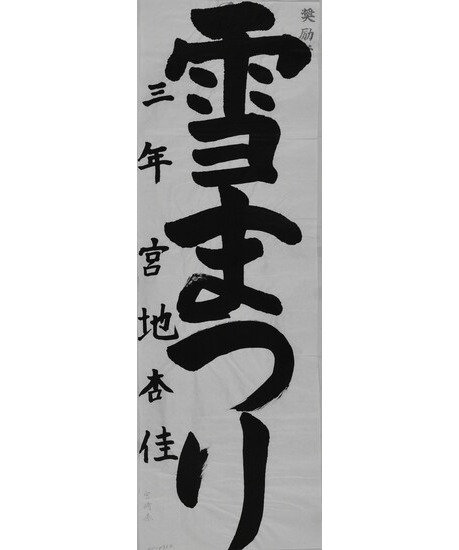 奨励
雪まつり
三年 宮地杏佳